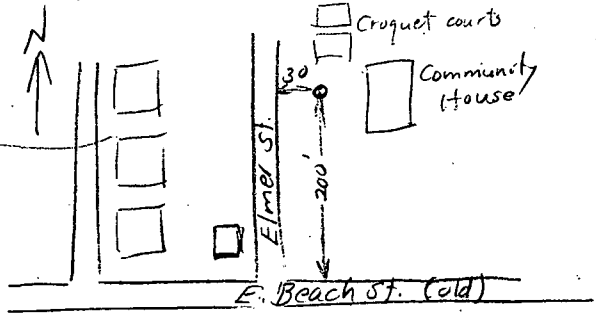 N
Croquet courts
30
Community
House
Elmer St.
200'
E. Beach St. (old)